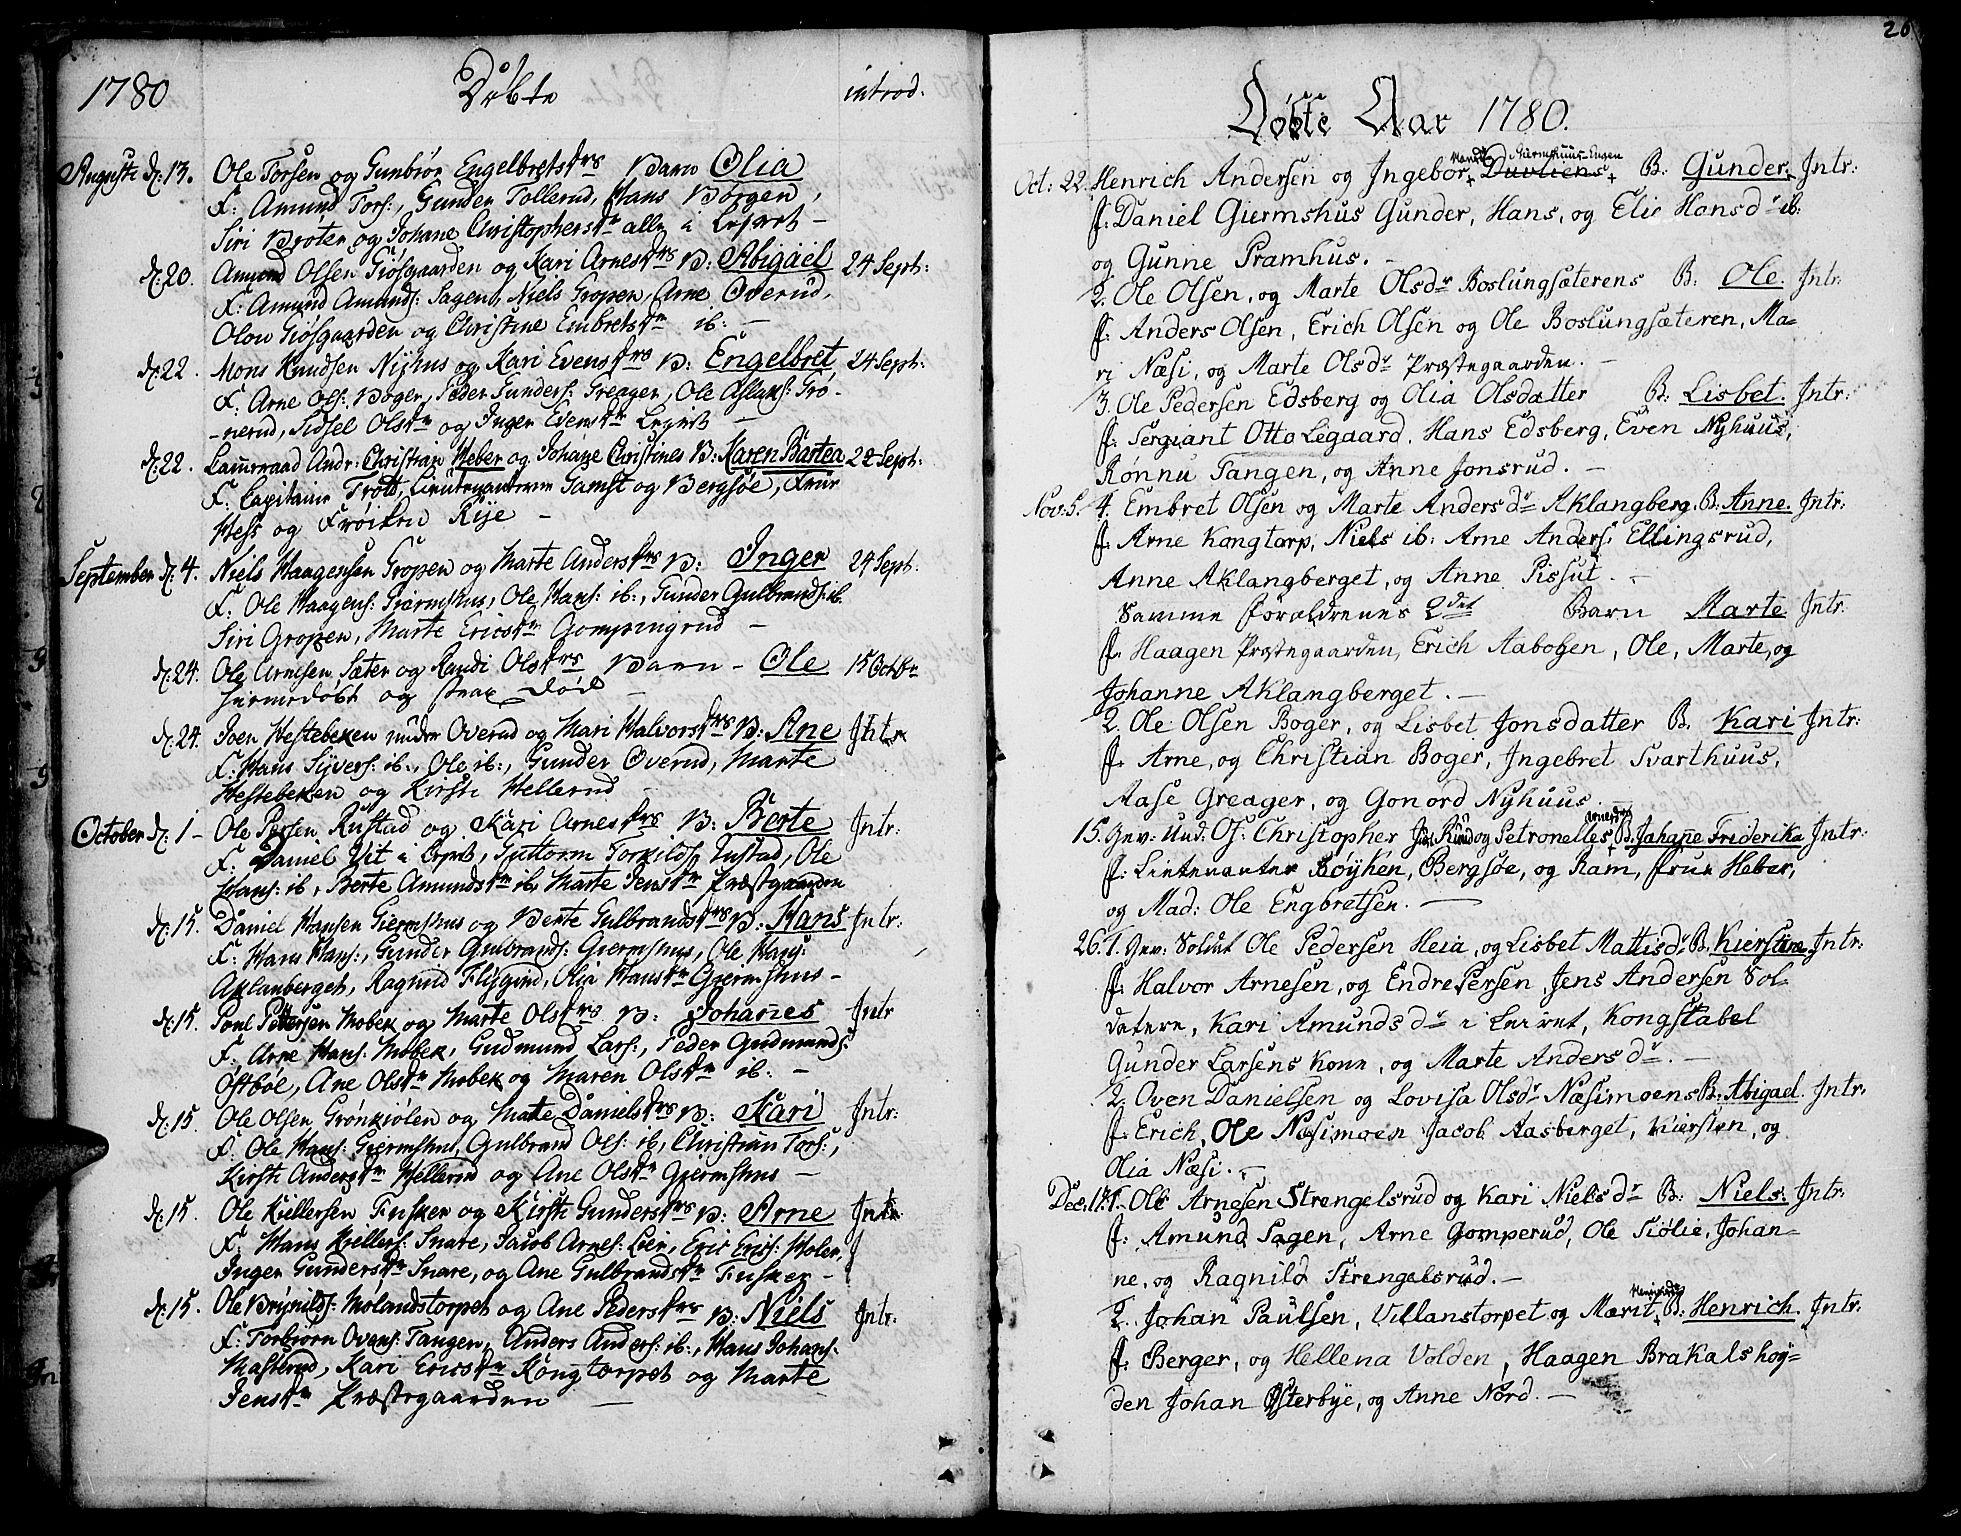 1780 Döbte introd.
Augusti d: 13. Ole Torsen og Gunbiör Engelbretsdrs Barn Olia
F: Amund Tors:, Gunder Tollerud, Hans Börgen,
Siri Bröten og Johane Christophersdr alle i Leyret –
d: 20. Amund Olsen Giösgaarden og Kari Arnesdrs B: Abigael 24 Sept:
F: Amund Amunds: Sagen, Niels Gropen, Arne Overud,
Olow Giösgaarden og Christine Embretsdr ib: –
d: 22. Mons Knudsen Nyhus og Kari Evensdrs B: Engelbret 24 Sept:
F: Arne Ols: Boger, Peder Gunders: Greager, Ole Aslaks: Grö-
-nerud, Sidsel Olsdr og Inger Evensdr Leyret –
d: 22. Lamrraad Andr: Christian Heber og Johane Christines B: Karen Bartea 22 Sept:
F: Capitaine Trott, Lieutenanterne Samst og Bergsöe, Frue
Hess og Fröiken Rije –
September d: 4. Niels Haagensen Gropen og Marte Andersdrs B: Inger 24 Sept.
F: Ole Haagens: Giermshus, Ole Hans: ib:, Gunder Gulbrands: ib.
Siri Gropen, Marte Ericsdr Gompingrud –
d: 24. Ole Arnesen Sæter og Randi Olsdrs Barn – Ole 15 Octbr
hiemmedöbt og strax död –
d: 24. Joen Hestebeken under Overud og Mari Halvorsdrs B: Ane Jntr
F: Hans Siivers: ib:, Ole ib:, Gunder Overud, Marte
Hestebeken og Kirsti Hellerud –
October d: 1 – Ole Persen Rustad og Kari Arnesdrs B: Berte Jntr:
F: Daniel Vit i Leyret, Guttorm Torkilds: Tustad, Ole
Hans: ib, Berte Amundsdr ib, Marte Jensdr Præstgaarden
d: 15. Daniel Hansen Giermshus og Berte Gulbrandsdrs B. Hans Jntr:
F: Hans Hans:, Gunder Gulbrands: Giermshus, Ole Hans:
Aklanberget, Ragnild Flijgind, Olia Hansdr Gjermshus –
d: 15. Poul Pettersen Mobek og Marte Olsdrs B: Johanes Jntr
F: Arne Hans: Mobek, Gudmund Lars:, Peder Gudmunds:
Östböe, Ane Olsdr Mobek og Maren Olsdr ib: –
d: 15. Ole Olsen Grönkiölen og Matte Danielsdrs B: Kari Jntr:
F: Ole Hans: Giermshus, Gulbrand Ols: ib, Christian Tors:,
Kirsti Andersdr Hellerud og Ane Olsdr Gjermshus –
d: 15. Ole Kiellersen Fusker og Kirsti Gundersdrs B: Arne Jntr.
F: Hans Kiellers: Snare, Jacob Arnes: Lier, Eric Erics: Holen,
Inger Gundersdr Snare, og Ane Gulbrandsdr Fusker –
d: 15. Ole Brijnilds: Mölandstorpet og Ane Pedersdrs B: Niels Jntr:
F: Torbiörn Ovens: Tangen, Anders Anders: ib:, Hans Johans:
Masterud, Kari Ericsdr Kongtorpet og Marte
Jensdr Præstegaarden –
26
Döbte Aar 1780.
Oct: 22. Henrich Andersen og Ingebor + Duvliens + B: Gunder. Jntr:
f: Daniel Giermshus Gunder, Hans, og Elie Hansdr ib:
og Gunne Pramhus. –
2. Ole Olsen, og Marte Olsdr Boslungsæterens B: Ole. Jntr:
f: Anders Olsen, Erich Olsen og Ole Boslungsæteren, Ma-
ri Næsi, og Marte Olsdr Præstegaarden. –
3. Ole Pedersen Edsberg og Olia Olsdatter B: Lisbet. Jntr:
f: Sergiant Otto Legaard. Hans Edsberg, Even Nyhuus,
Rönnu Tangen, og Anne Jonsrud. –
Nov: 5. 4. Embret Olsen og Marte Andersdr Aklangberg. B: Anne. Jntr:
f: Arne Kongtorp, Niels ib: Arne Anders: Ellingsrud,
Anne Aklangberget, og Anne Pissut. –
Samme foroldrenes 2det Barn Marte Jntr:
f: Haagen Præstegaarden, Erich Aabogen, Ole, Marte, og
Johanne Aklangberget. –
2. Ole Olsen Boger, og Lisbet Jonsdatter B. Kari Jntr:
f: Arne, og Christian Boger, Ingebret Svarthuus,
Aase Greager, og Gonord Nyhuus. –
15. Gev: Und: Of: Christopher og Petronelles B: Johane Friderika Jntr:
f: Lieutenanter Böyken, Bergsöe, og Ram, frue Heber,
og Mad: Ole Engbretsen. –
26. 1. Gev: Soldat Ole Pedersen Heia, og Lisbet Mattisdr B. Kierstine, Jntr:
f: Halvor Arnesen, og Endre Persen, Jens Andersen Sol-
datere, Kari Amundsdr i Leiret, Kongstabel
Gunder Larsens Kone, og Marte Andersdr. –
2. Oven Danielsen og Lovisa Olsdr Næsimoens B: Abigael. Jntr:
f: Erich, Ole Næsimoen Jacob Aasberget, Kiersten, og
Olia Næsi. –
Dec: 17. 1. Ole Arnesen Strengelsrud og Kari Nielsdr B: Niels. Jntr:
f: Amund Sagen, Arne Gomperud, Ole Siölie, Johan-
ne, og Ragnild Strengelsrud. –
2. Johan Paulsen, Villanstorpet og Marit + B: Henrich. Jntr:
f: Berger, og Hellena Volden, Haagen Brakalshöy-
den Johan Österbye, og Anne Nord. –